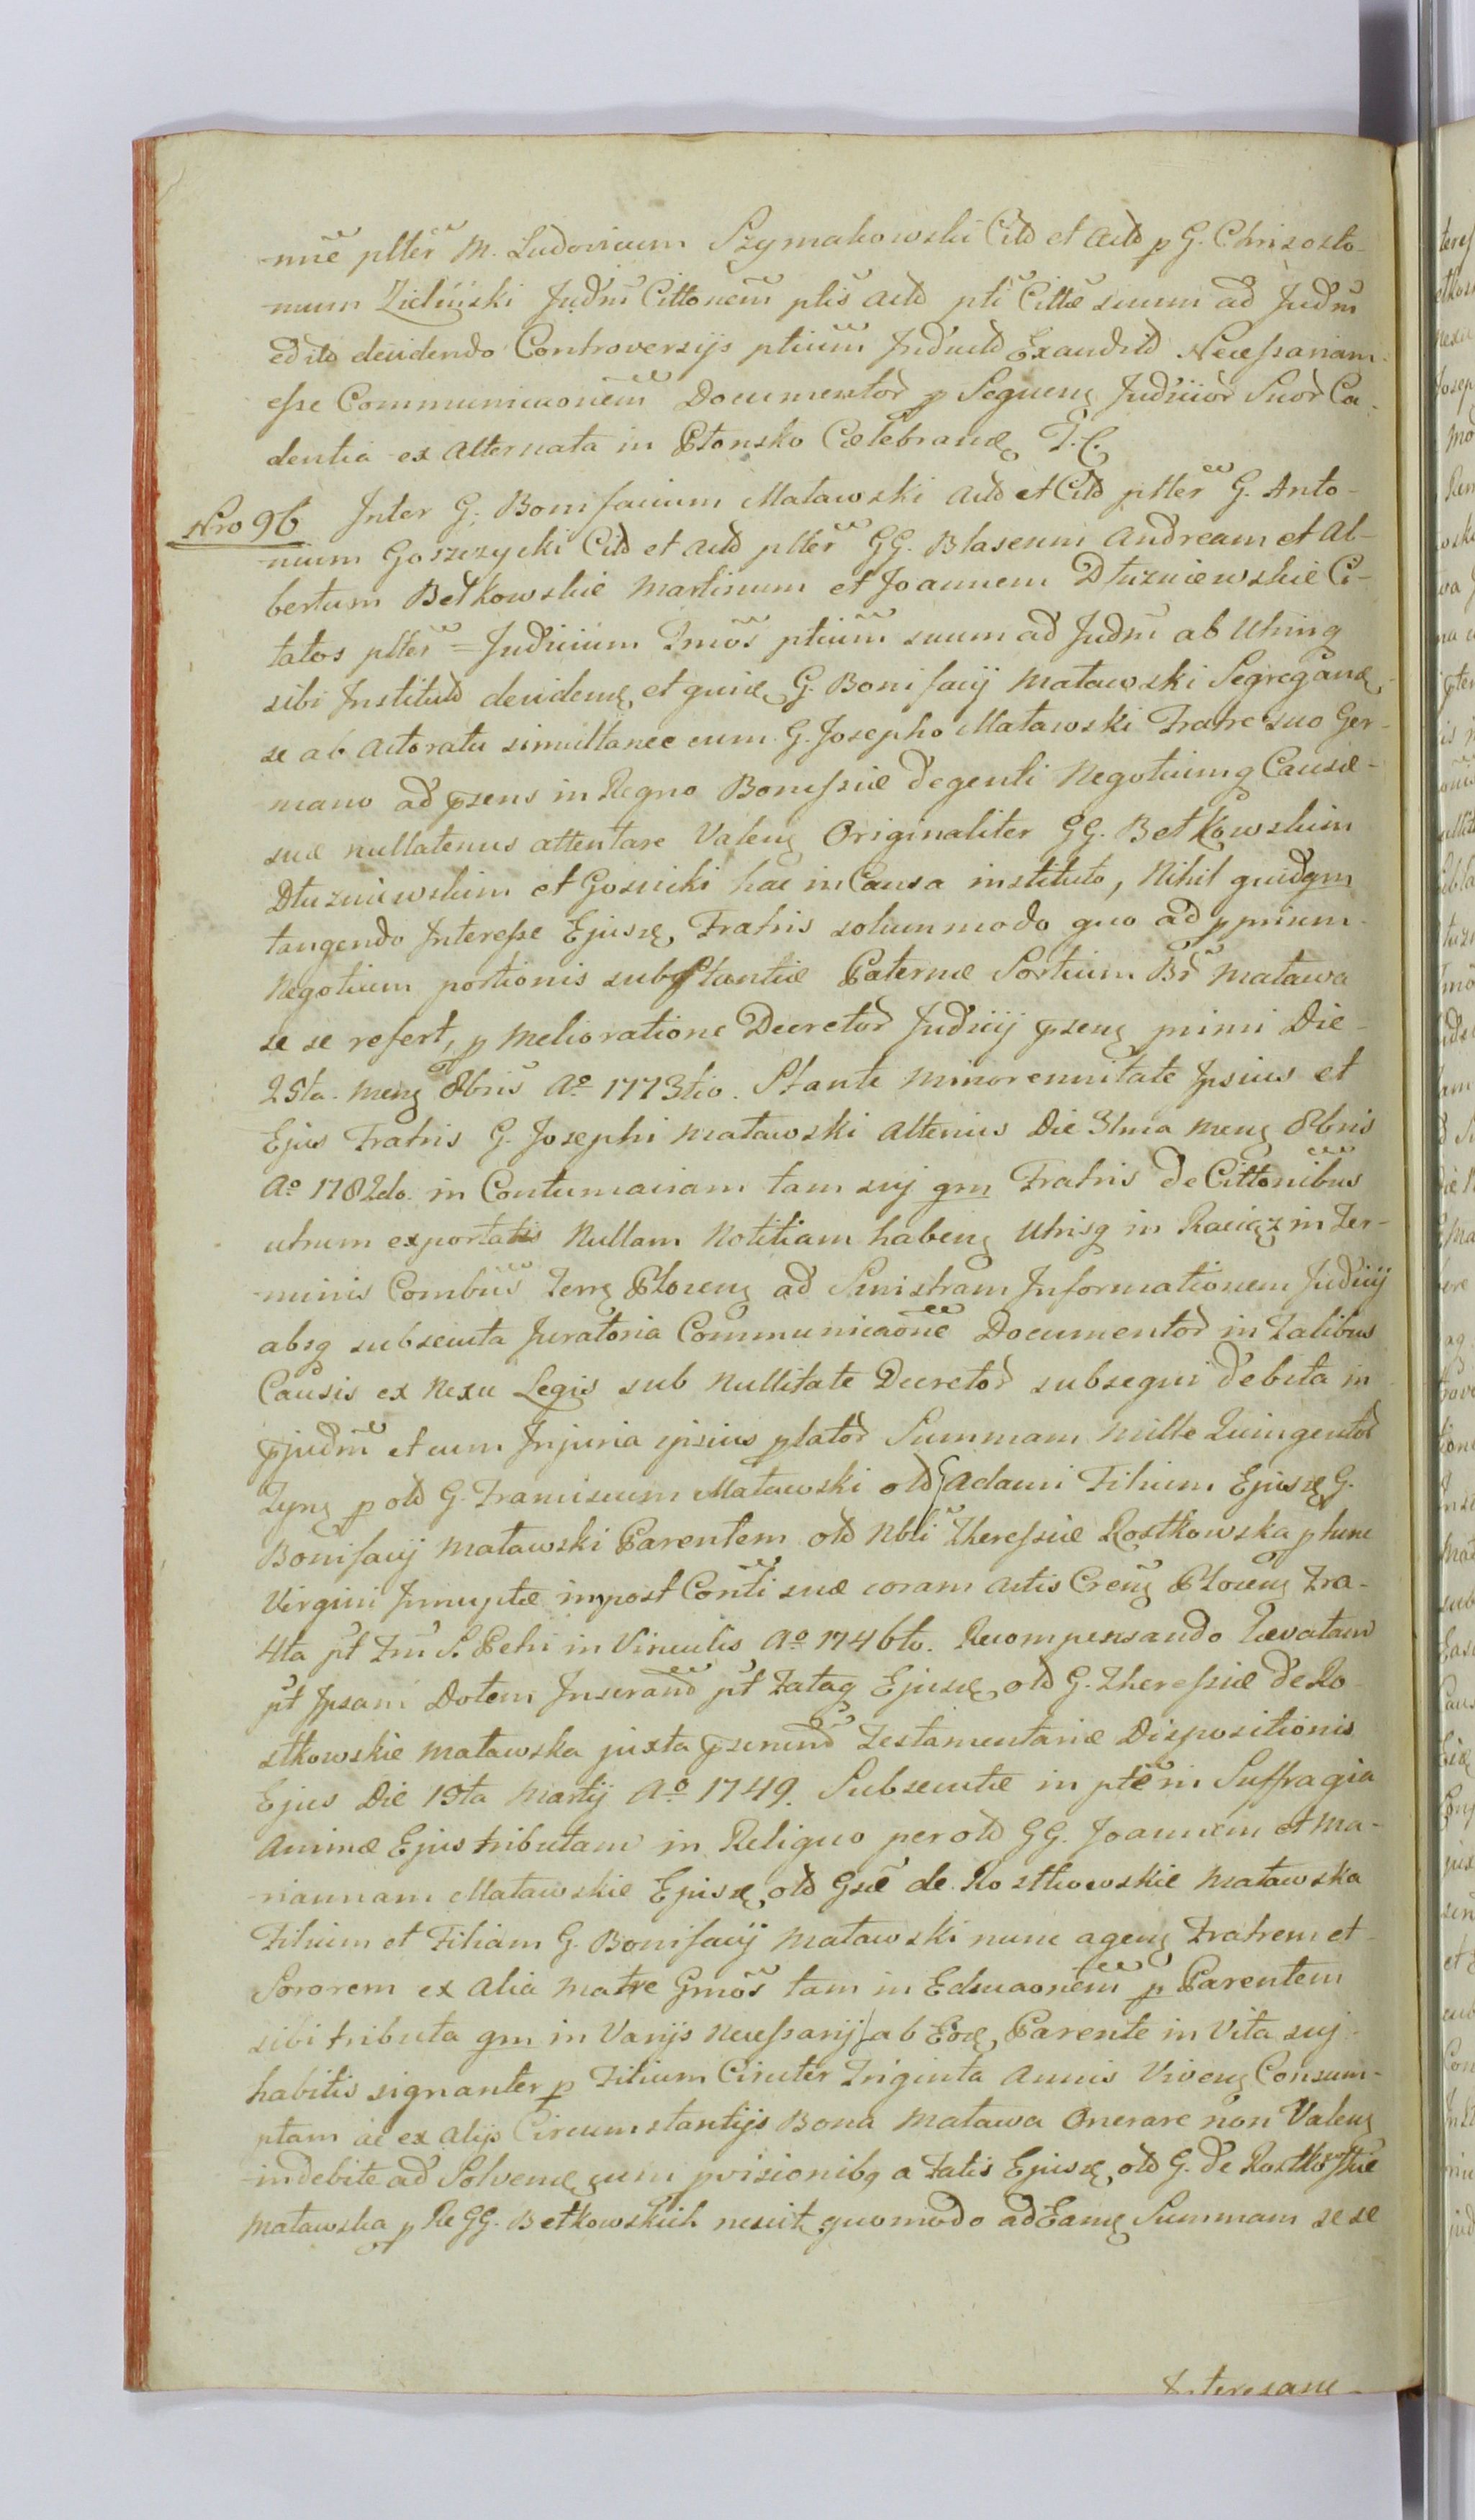 -mie ptter M. Ludovicum Szymakowski Citd et Actd p G. Chrisosto-
-mum Zieliński Judm Cittonem ptis Actd pti Citte suum ad Judm
editd deidendo Controversijs ptium Inductd Exauditd Necessariam
esse Communicaonem Documentor p Sequens Judicior Suor Ca-
dentia ex Alternata in Płonsko Celebrand T. C.
Nro 96 Inter G. Bonifacium Matawski Actd et Citd ptter G. Anto-
nium Goszczycki Citd et Actd ptter GG. Blaseum Andream et Al-
bertum Bełkowskie Martinum et Joannem Dłuzniewskie Ci-
tatos ptter = Judicium Tmos ptium suum ad Judm ab Utrinq
sibi Institutd deidend et quia G. Bonifacij Matawski Segregand
se ab Actoratu simultanee cum G. Josepho Matawski Fratre suo Ger-
mano ad psens in Regno Borussiæ degenti Negotiumq Causæ
suæ nullatenus attentare Valens Originaliter GG. Bełkowskim
Dłuzniewskim et Gosicki hac in Causa instituto, Nihil quidqm
tangendo Interesse Ejusd Fratris solummodo quo ad pprium
Negotium portionis substantiæ Paternæ Sortium Br Matawa
se se refert, p melioratione Decretor Judicij psens primi Die
25ta mens 8bris Ao 1773tio. Stante Minorennitate Ipsius et
Ejus Fratris G. Josephi Matawski Alterius Die 31ma mens 8bris
Ao 1782do in Contumaciam tam suj qm Fratris de Cittonibus
utrum exportatis Nullam Notitiam habens Utrisq in Raciąz in Ter-
minis Combus Terrs Płocens ad Sinistram Informationem Judicij
absq subsecuta Juratoria Communicaone Documentor in Talibus
Causis ex Nexu Legis sub Nullitate Decretor subsequi debita in
pjudm et cum Injuria ipsius plator Summam Mille Quingentor
Tyns p old G. Franciscum Matawski old Adami Filium Ejusd G.
Bonifacij Matawski Parentem old Nbli Theressiæ Rostkowska p tunc
Virgini Innuptæ inpost Conti suæ coram Actis Crens Płocens Fra-
4ta pt Fm S. Petri in Vinculis Ao 1746to. Recompensando Levatam
pt Ipsam Dotem Inserand pt Fataq Ejusd old G. Theressiæ de Ro-
stkowskie Matawska juxta pserend Testamentariæ Dispositionis
Ejus Die 19ta Martij Ao 1749. Subsecutæ in ptem Suffragia
Animæ Ejus tributam in Reliquo per old GG. Joannem et Ma-
riannam Matawskie Ejusd old Gsæ de Rostkowskie Matawska
Filium et Filiam G. Bonifacij Matawski nunc agens Fratrem et
Sororem ex Alia Matre Gmos tam in Educaonem p Parentem
sibi tributa qm in Varijs Necessarij ab Eod Parente in Vita suj
habitis signanter p Filium Circiter Triginta Annis Vivens Consum-
ptam ac ex Alijs Circumstantijs Bona Matawa Onerare non Valens
indebite ad Solvend cum pvisionibq a Fatis Ejusd old G. de Rostkowskie
Matawska p Re GG. Bełkowskich nescit quomodo ad Eamd Summam se se
Interesant